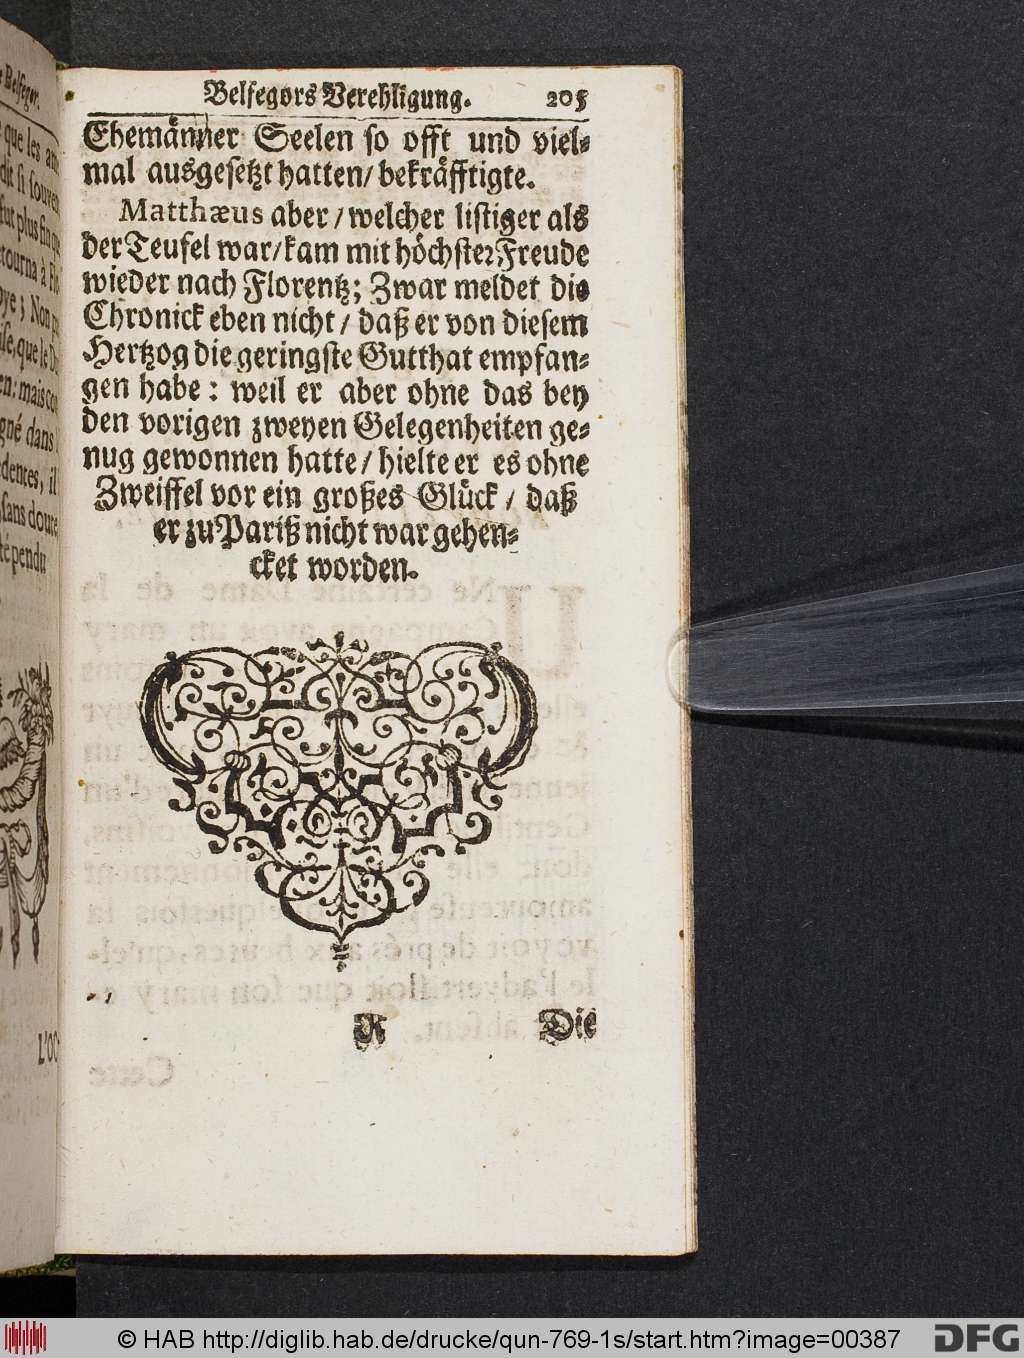 Belfegors Verehligung. 205
Ehemänner Seelen so offt und viel=
mal ausgesetzt hatten/ bekräfftigte.
Matthæus aber/ welcher listiger als
der Teufel war/ kam mit höchster Freude
wieder nach Florentz; Zwar meldet die
Chronick eben nicht/ daß er von diesem
Hertzog die geringste Gutthat empfan=
gen habe: weil er aber ohne das bey
den vorigen zweyen Gelegenheiten ge=
nug gewonnen hatte/ hielte er es ohne
Zweiffel vor ein großes Glück/ daß
er zu Pariß nicht war gehen=
cket worden.
R Die
Belfegor.
que les am
dit si souven
fut plus fin que
tourna à Flo
oye; Non
que le D
en: mais
gné dans
dentes, il
sans doute
té pendu
L'OC
© HAB http://diglib.hab.de/drucke/qun-769-1s/start.htm?image=00387
DFG